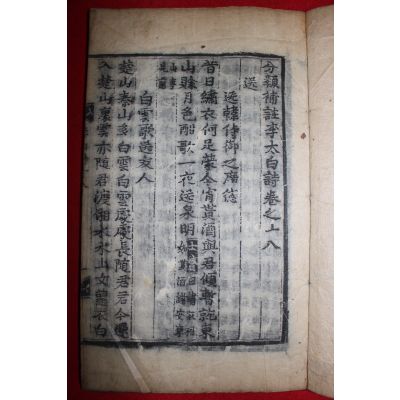 分類補註李太白詩卷之十八
送
送韓侍御之廣德
昔日繡衣何足榮今宵貰酒與君傾暫就東
山賖月色酣歌一夜送泉明
白雲歌送友人
楚山秦山多白雲白雲處處長隨君君今還
入楚山裏雲亦隨君渡湘水水上女蘿衣白